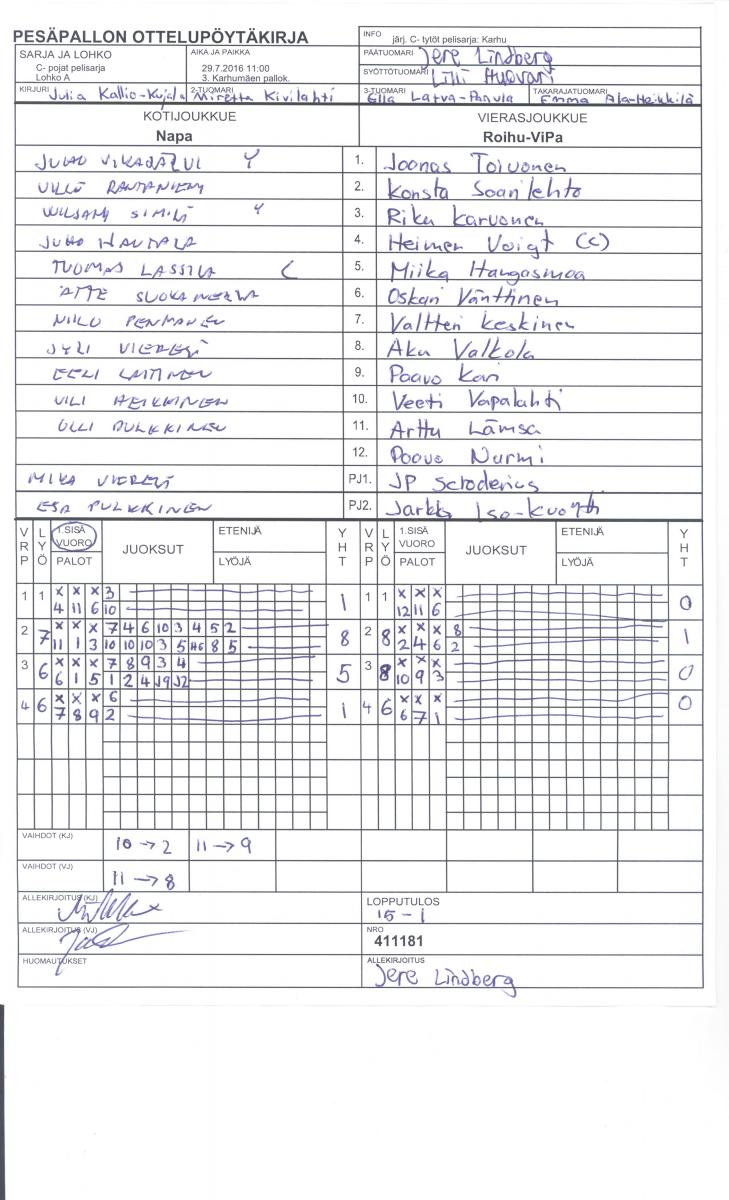 PESÄPALLON OTTELUPÖYTÄKIRJA
INFO järj. C- tytöt pelisarja: Karhu
SARJA JA LOHKO
C- pojat pelisarja
Lohko A
AIKA JA PAIKKA
29.7.2016 11:00
3. Karhumäen pallok.
PÄÄTUOMARI Jere Lindberg
SYÖTTÖTUOMARI Lilli Huovari
KIRJURI Julia Kallio-Kujala 2-TUOMARI Miretta Kivilahti 3-TUOMARI Ella Latva-Panula TAKARAJATUOMARI Emma Ala-Heikkilä
KOTIJOUKKUE VIERASJOUKKUE
Napa Roihu-ViPa
JUHO Y 1. Joonas Toivonen
VILLE RAUTANIEMI 2. Konsta Soanlehto
Y 3. Riku Karvonen
JUHO HAUTALA 4. Heimen Voigt (C)
TUOMAS LASSILA C 5. Miika Hangasmaa
ATTE 6. Oskari Vänttinen
NIILO PENMANEN 7. Valtteri Keskinen
JYLI 8. Aku Valkola
EELI LAITINEN 9. Paavo Kari
VILI HEIKKINEN 10. Veeti Vapalahti
OLLI PULKKINEN 11. Arttu Lämsä
12. Paavo Nurmi
MIKA PJ1. JP
ESA PULKKINEN PJ2. Jarkko
VRP LYÖ 1.SISÄ VUORO PALOT JUOKSUT ETENIJÄ LYÖJÄ YHT VRP LYÖ 1.SISÄ VUORO PALOT JUOKSUT ETENIJÄ LYÖJÄ YHT
1 1 x x x 3 1 1 1 x x x 0
4 11 6 10 12 11 6
2 7 x x x 7 4 6 10 3 4 5 2 8 2 8 x x x 8 1
11 1 3 10 10 10 3 5 8 5 2 4 6 2
3 6 x x x 7 8 9 3 4 5 3 8 x x x 0
6 1 5 1 2 4 10 9 3
4 6 x x x 6 1 4 6 x x x 0
7 8 9 2 6 7 1
VAIHDOT (KJ) 10 → 2 11 → 9
VAIHDOT (VJ) 11 → 8
ALLEKIRJOITUS (KJ)
LOPPUTULOS
15 - 1
ALLEKIRJOITUS (VJ)
NRO
411181
HUOMAUTUKSET
ALLEKIRJOITUS
Jere Lindberg